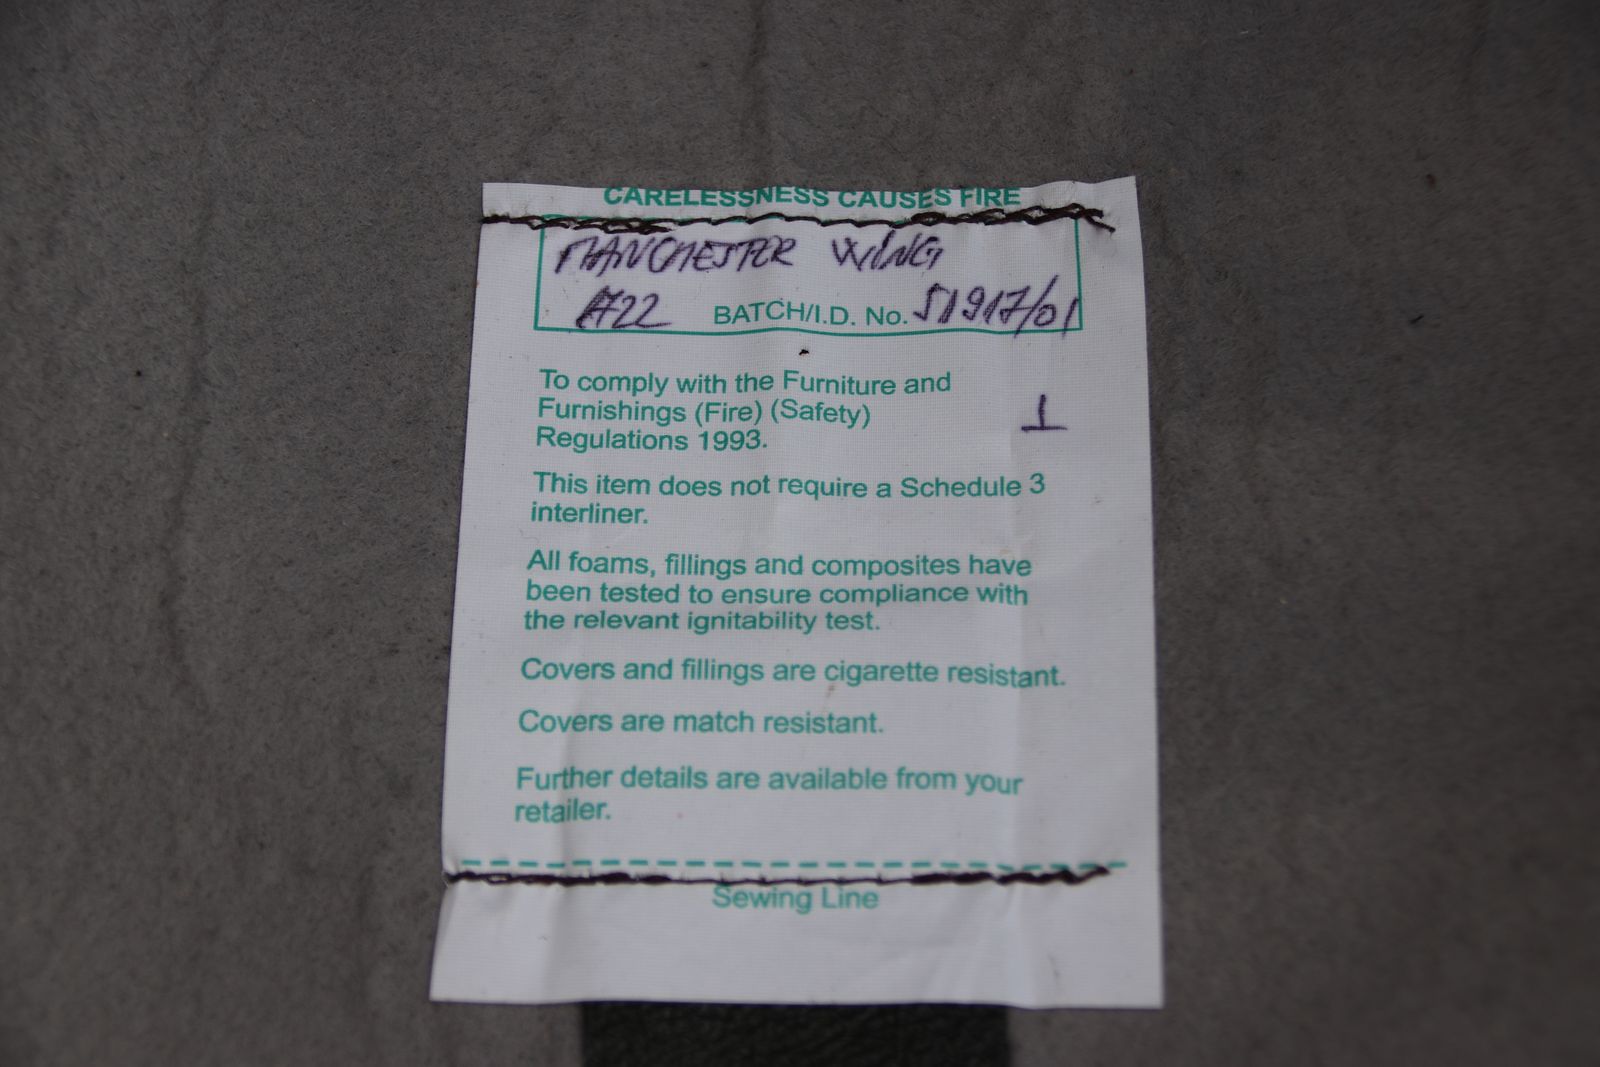 CARELESSNESS CAUSES FIRE
MANCHESTER WING
A22 BATCH/I.D. No. S1917/01
To comply with the Furniture and
Furnishings (Fire) (Safety)
Regulations 1993.
1
This item does not require a Schedule 3
interliner.
All foams, fillings and composites have
been tested to ensure compliance with
the relevant ignitability test.
Covers and fillings are cigarette resistant.
Covers are match resistant.
Further details are available from your
retailer.
Sewing Line